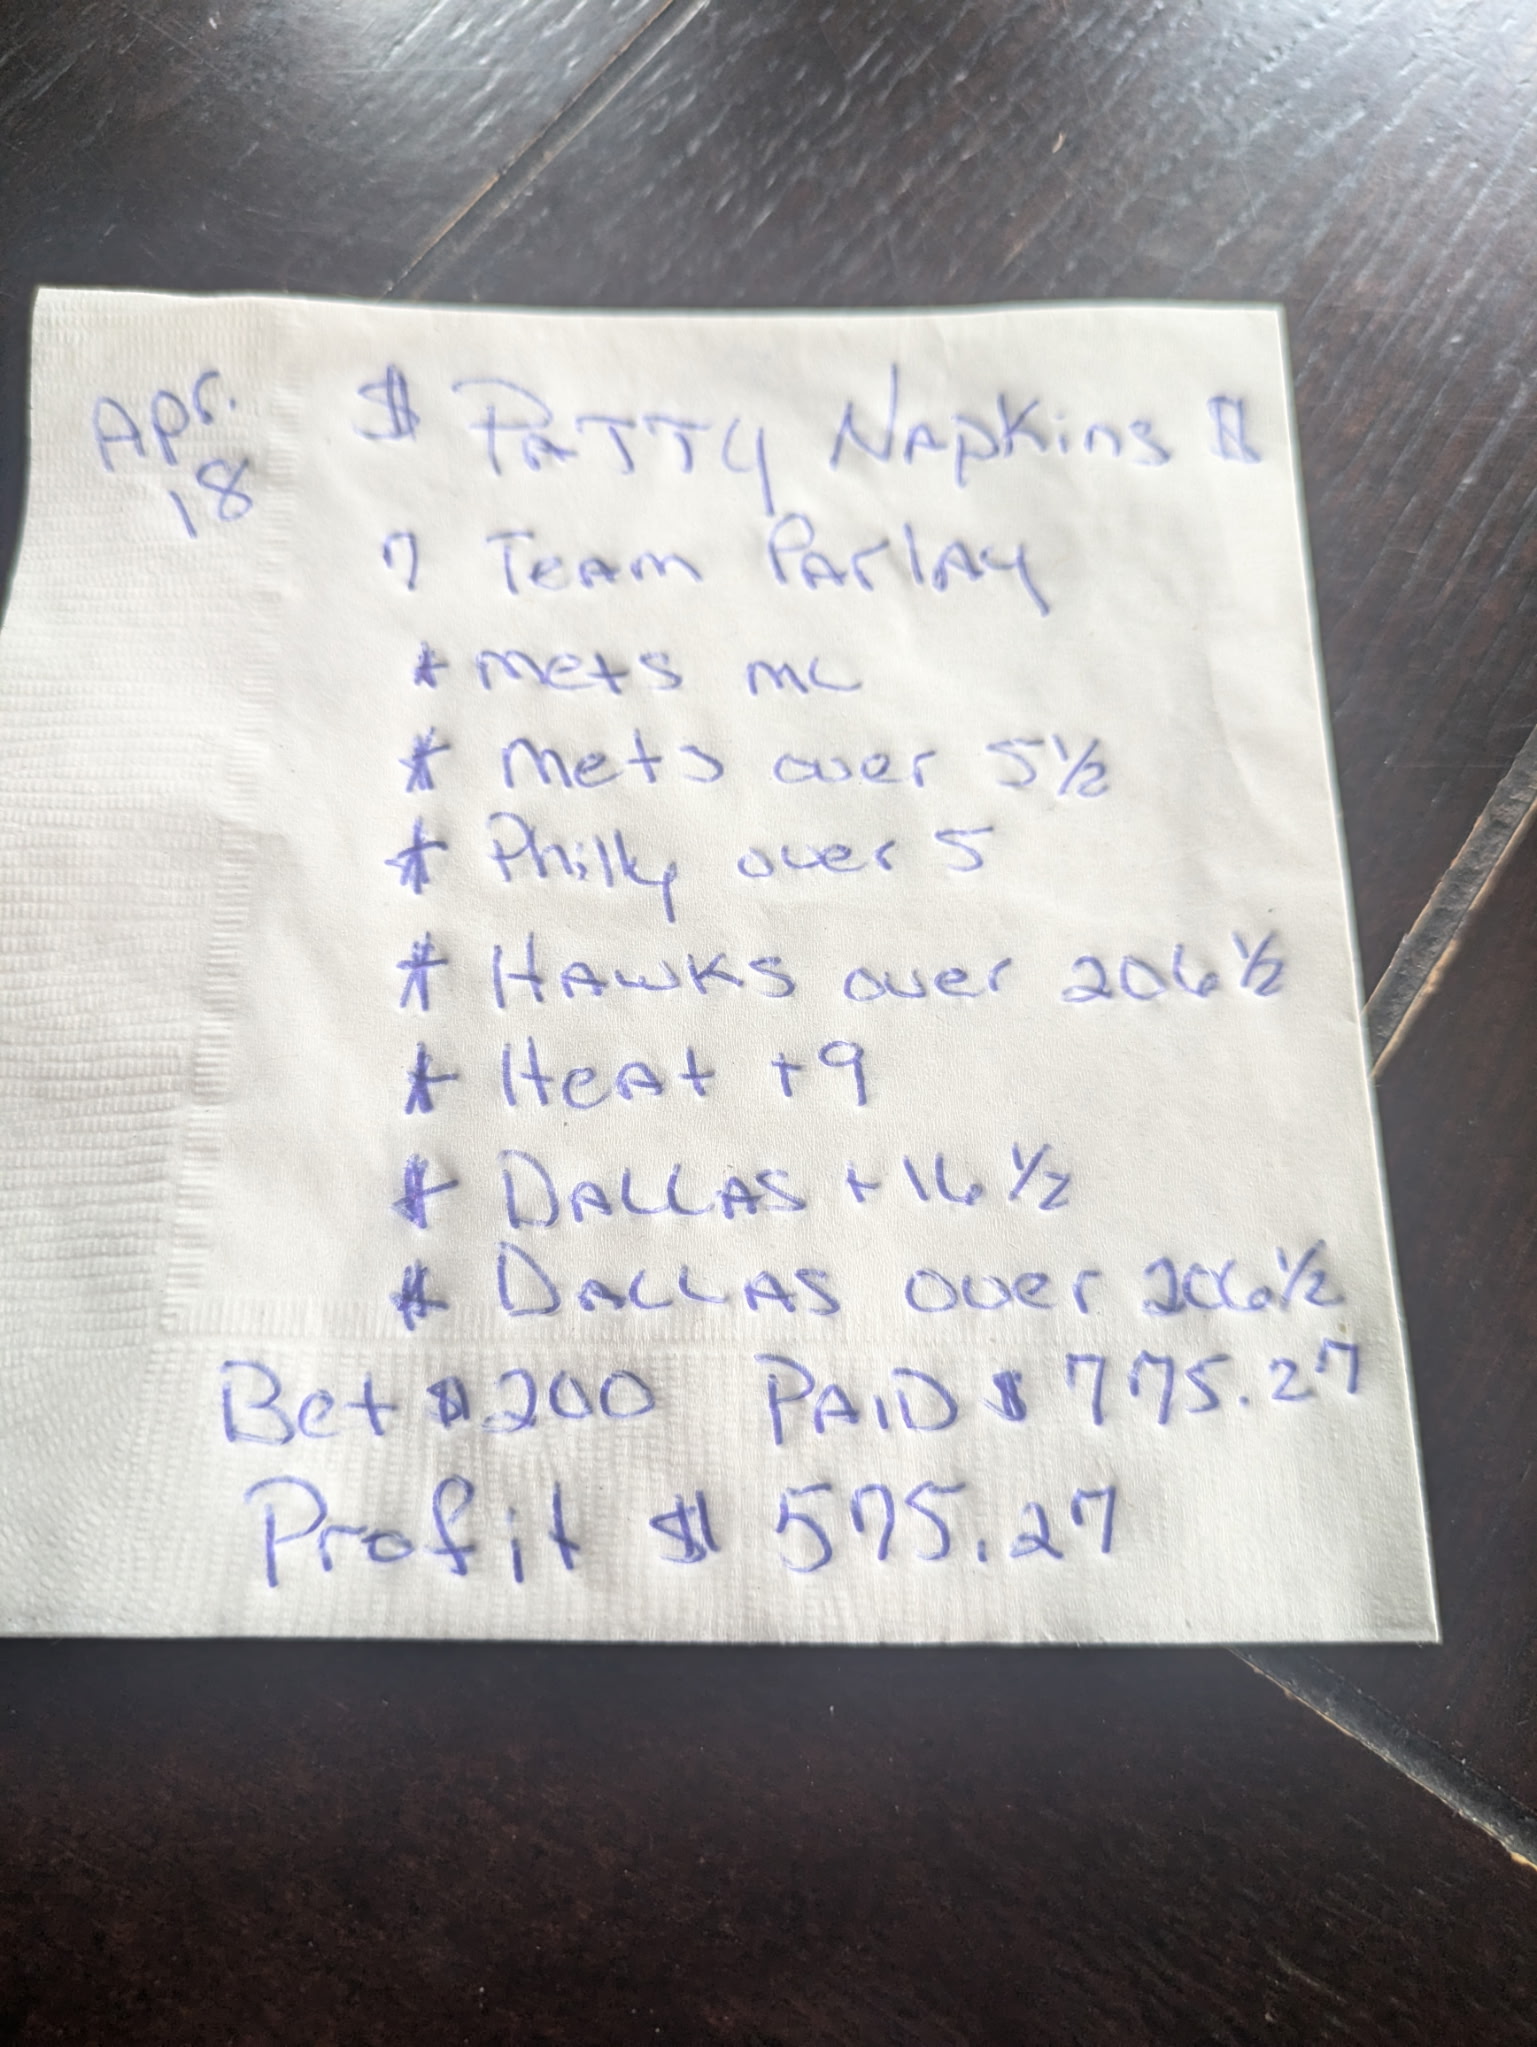 Apr. 18
$ PATTY NAPKins $
7 TEAM PArlAy
* mets ML
* mets over 5 1/2
* Philly over 5
* HAWKS over 206 1/2
* HeAt +9
* DALLAS +16 1/2
* DALLAS over 206 1/2
Bet $200 PAID $775.27
Profit $575.27